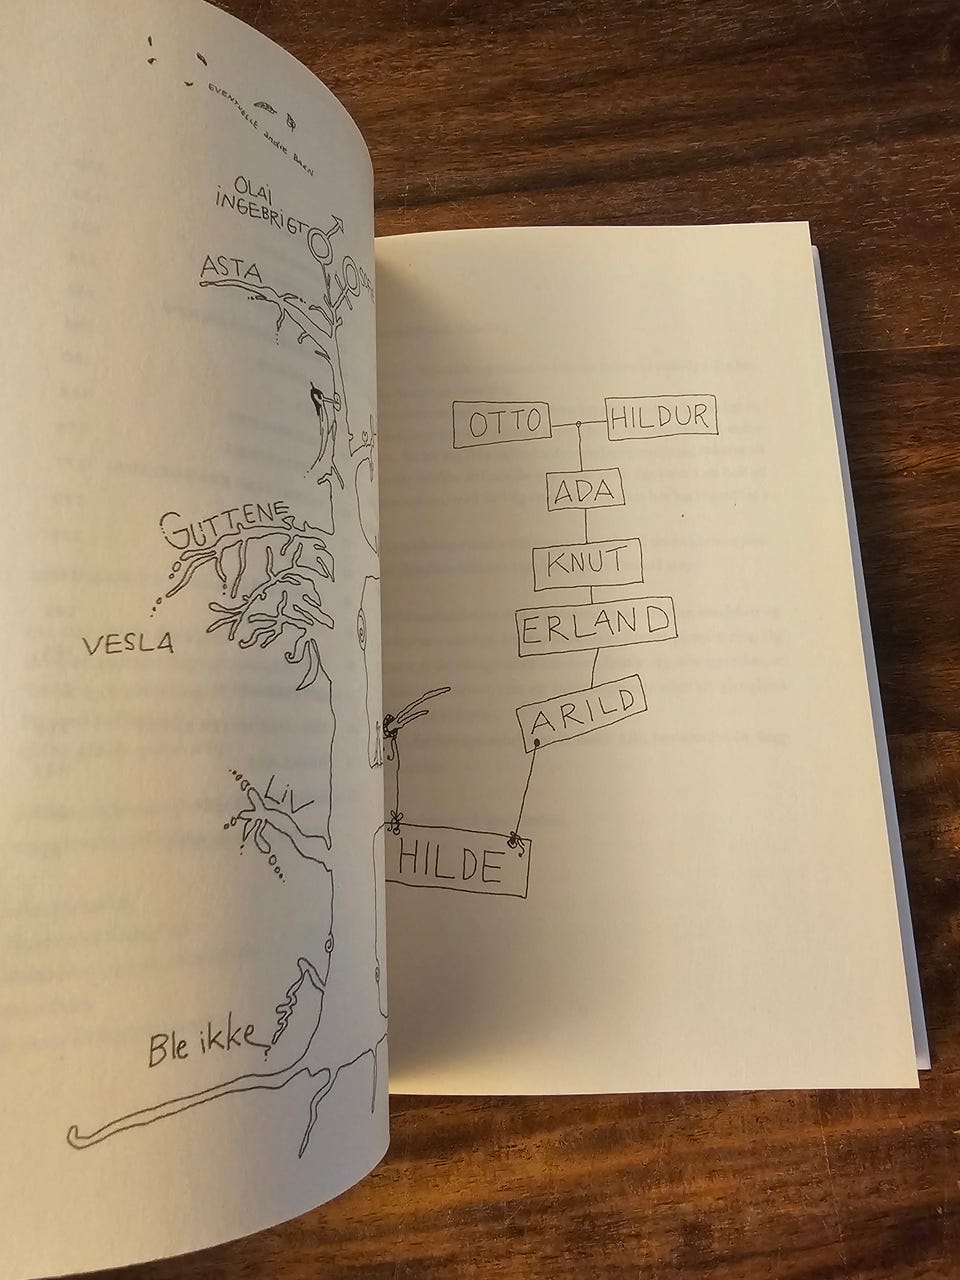 EVENTUELLE andre BARN
OLAi
iNGEBRiGT
ASTA
GUTTENE
VESLA
LiV
Ble ikke
OTTO
HILDUR
ADA
KNUT
ERLAND
ARILD
HILDE